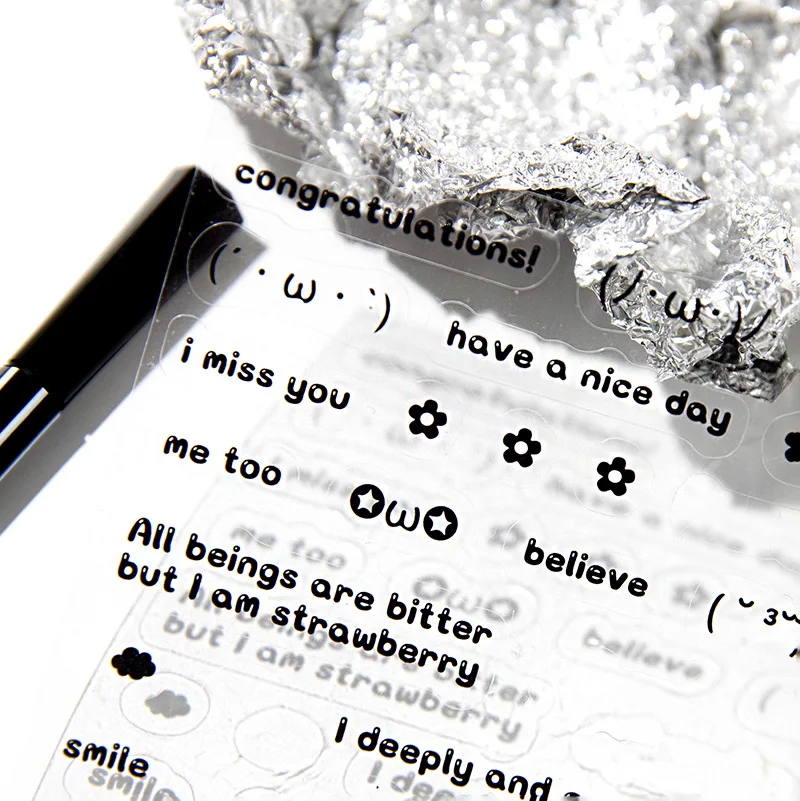 congratulations!
(´・ω・`)
(ﾉ・ω・)ﾉ
have a nice day
i miss you
me too
✪ω✪
believe
( ˘ ³˘
All beings are bitter
but I am strawberry
I deeply and
smile